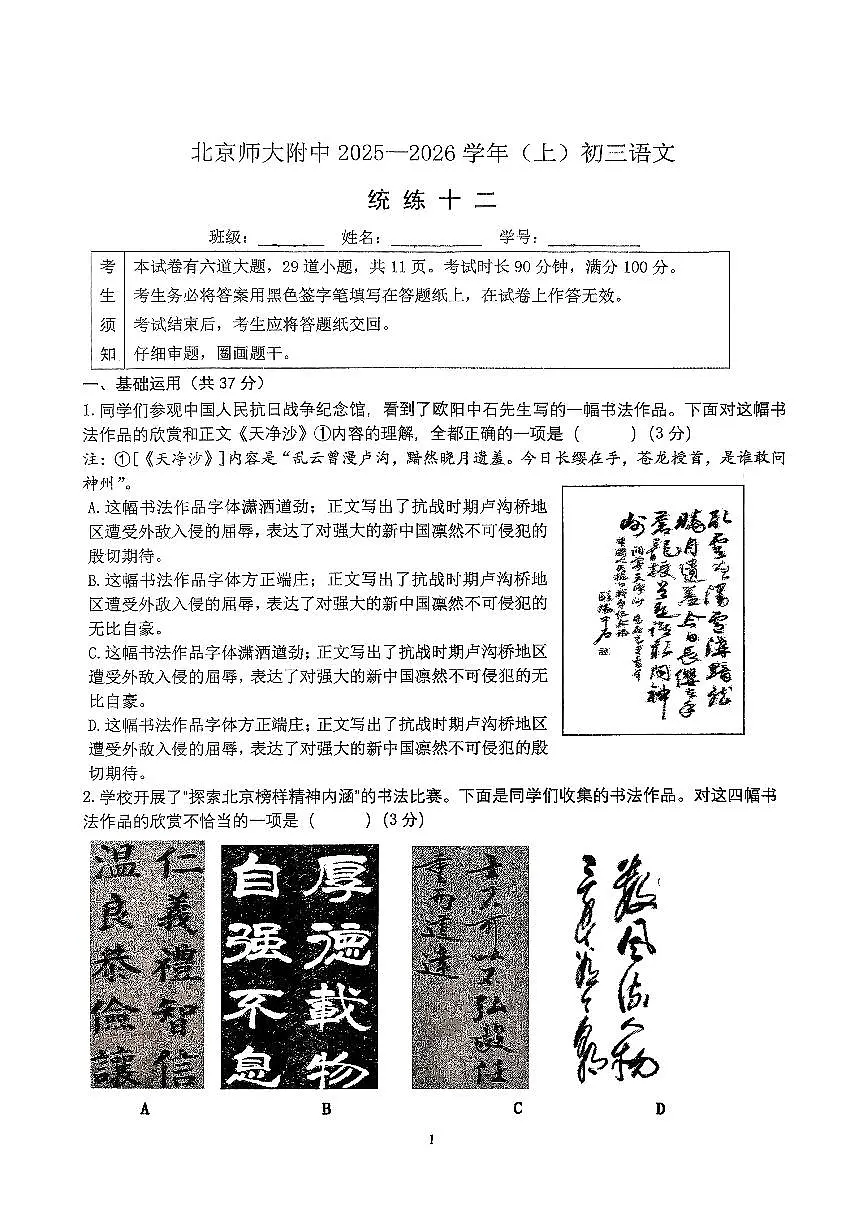 北京师大附中 2025—2026 学年（上）初三语文
统 练 十 二
班级：______ 姓名：________ 学号：________
考生须知
本试卷有六道大题，29 道小题，共 11 页。考试时长 90 分钟，满分 100 分。
考生务必将答案用黑色签字笔填写在答题纸上，在试卷上作答无效。
考试结束后，考生应将答题纸交回。
仔细审题，圈画题干。
一、基础运用（共 37 分）
1. 同学们参观中国人民抗日战争纪念馆，看到了欧阳中石先生写的一幅书法作品。下面对这幅书
法作品的欣赏和正文《天净沙》①内容的理解，全都正确的一项是（　　）(3 分)
注：①[《天净沙》]内容是“乱云曾漫卢沟，黯然晓月遗羞。今日长缨在手，苍龙授首，是谁敢问
神州”。
A. 这幅书法作品字体潇洒遒劲；正文写出了抗战时期卢沟桥地
区遭受外敌入侵的屈辱，表达了对强大的新中国凛然不可侵犯的
殷切期待。
B. 这幅书法作品字体方正端庄；正文写出了抗战时期卢沟桥地
区遭受外敌入侵的屈辱，表达了对强大的新中国凛然不可侵犯的
无比自豪。
C. 这幅书法作品字体潇洒遒劲；正文写出了抗战时期卢沟桥地区
遭受外敌入侵的屈辱，表达了对强大的新中国凛然不可侵犯的无
比自豪。
D. 这幅书法作品字体方正端庄；正文写出了抗战时期卢沟桥地区
遭受外敌入侵的屈辱，表达了对强大的新中国凛然不可侵犯的殷
切期待。
2. 学校开展了"探索北京榜样精神内涵"的书法比赛。下面是同学们收集的书法作品。对这四幅书
法作品的欣赏不恰当的一项是（　　）(3 分)
仁義禮智信
温良恭儉讓
厚德載物
自强不息
士不可以不弘毅任
重而道遠
數風流人物
A
B
C
D
1